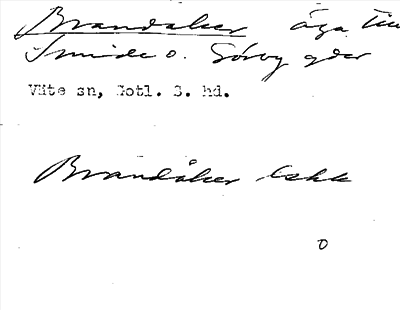 Brandåker äga till
Smide o. Sörby gder
Väte sn, Gotl. S. hd.
Brandåker
o